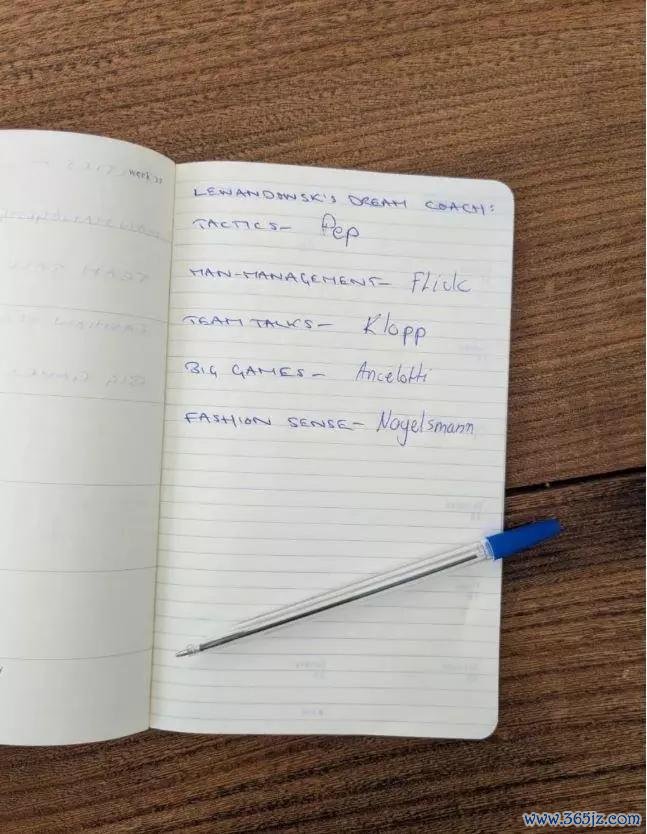 week 27
LEWANDOWSK'S DREAM COACH:
TACTICS- Pep
MAN-MANAGEMENT- FLick
TEAM TALKS- Klopp
BIG GAMES- Ancelotti
FASHION SENSE- Nagelsmann
www.365jz.com